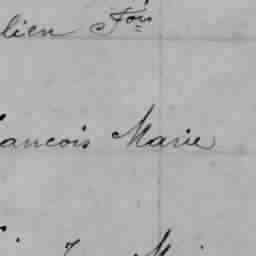 lien Fois
ancois Marie